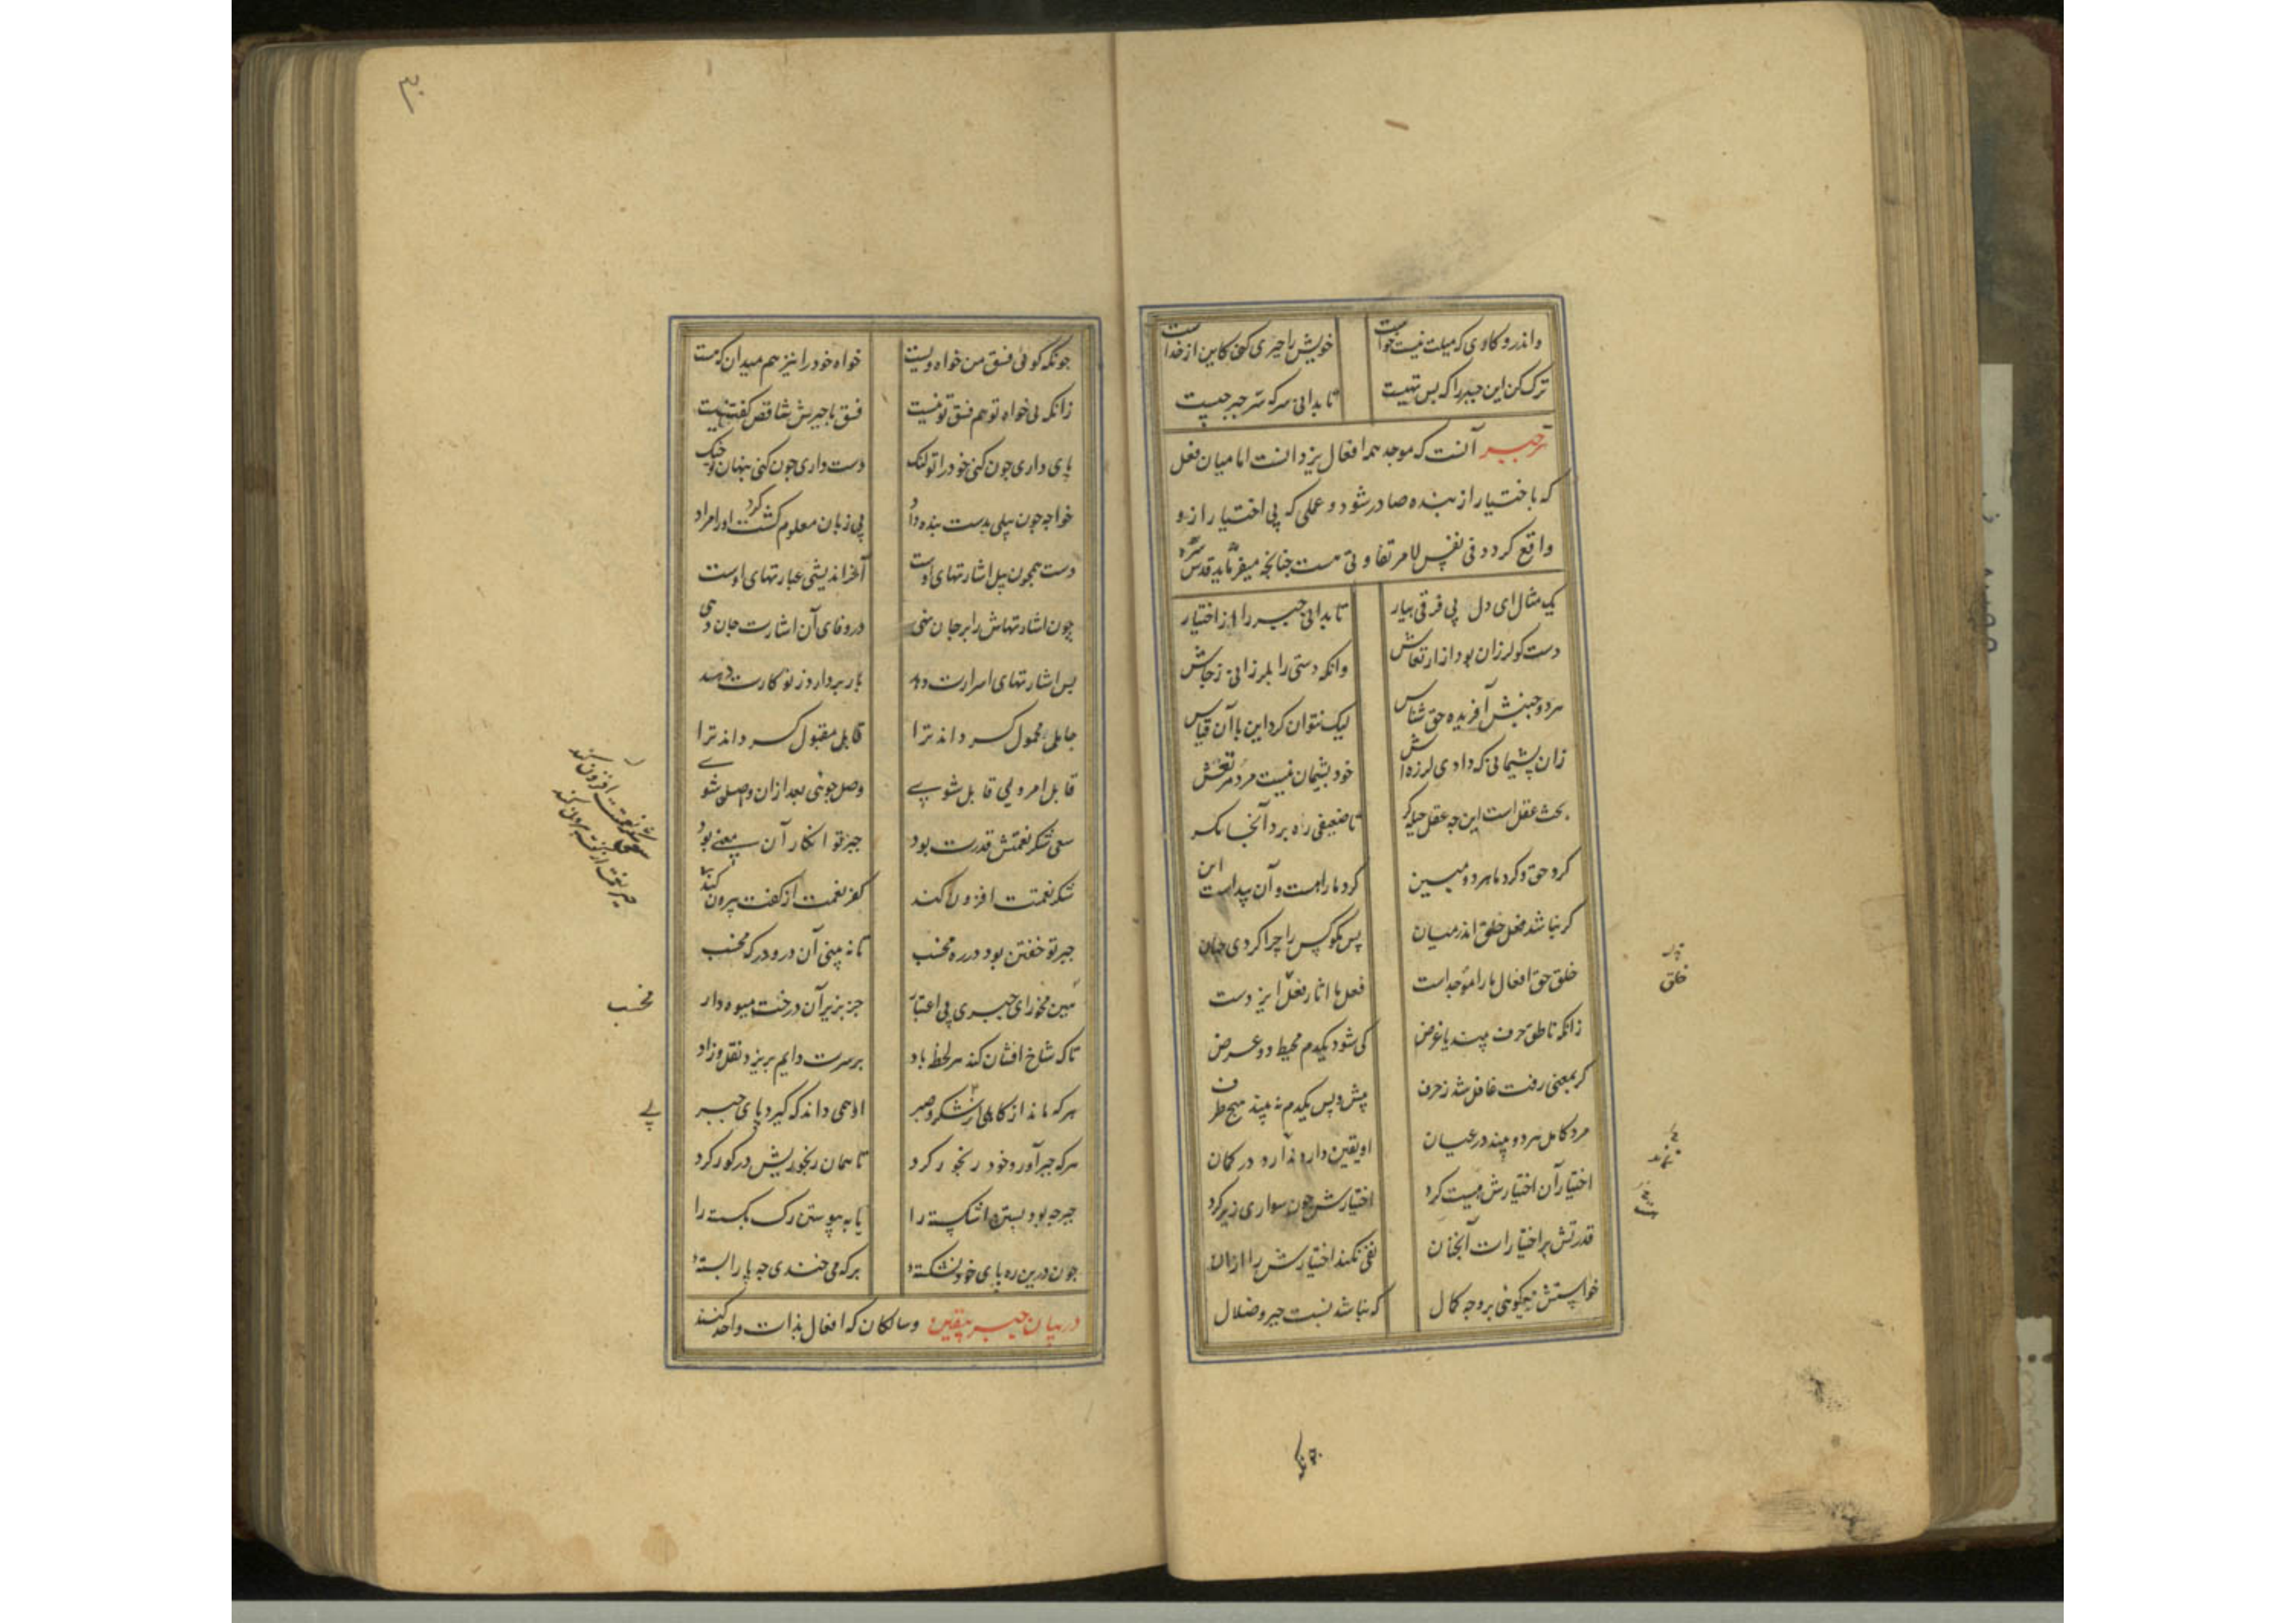 واندرو کاری که میلت نیست خواست خویش را جبری کنی کاین از خداست
ترک کن این جبر را که بس تهیست تا بدانی سر که سر جبر چیست
سر جبر آنست که موجد همه افعال یزدانست اما میان فعل
که باختیار از بنده صادر شود و عملی که بی اختیار ازو
واقع کردد فی نفس الامر تفاوتی هست چنانچه میفرماید قدس سره
یک مثال ای دل پی فرقی بیار تا بدانی جبر را از اختیار
دست کو لرزان بود از ارتعاش وانکه دستی را بلرزانی ز جاش
هر دو جنبش آفریده حق شناس لیک نتوان کرد این با آن قیاس
زان پشیمانی که دادی لرزه اش خود پشیمان نیست مرد مرتعش
بحث عقل است این چه عقل حیله کر تا ضعیفی ره برد آنجا مکر
کرد حق و کرد ما هر دو ببین کرد ما را هست و آن پیداست این
کر نباشد فعل خلق اندر میان پس مکو کس را چرا کردی چنان
خلق حق افعال ما را موجد است فعل ما اثار فعل ایزدست
زانکه ناطق حرف بیند یا غرض کی شود یکدم محیط دو عرض
کر بمعنی رفت غافل شد ز حرف پیش و پس یکدم نه بیند هیچ طرف
مرد کامل هر دو بیند در عیان او یقین دارد ندارد در کمان
اختیار آن اختیارش هست کرد اختیارش چون سواری زیر کرد
قدرتش بر اختیارات آنچنان نفی نکند اختیارش را ازان
خواستش میکوئی بر وجه کمال که نباشد نسبت جبر و ضلال
خلق
چونکه
۳۰
چونکه کوئی فسق من خواه ویست خواه خود را نیز هم میدان که هست
زانکه بی خواه تو هم فسق تو نیست فسق با جبرش تناقض کفتنیست
پای داری چون کنی خود را تو لنک دست داری چون کنی پنهان تو چنک
خواجه چون بیلی بدست بنده داد بی زبان معلوم کشت او را مراد
دست همچون بیل اشارتهای اوست آخر اندیشی عبارتهای اوست
چون اشارتهاش را بر جان نهی در وفای آن اشارت جان دهی
پس اشارتهای اسرارت دهد بار بردارد ز تو کارت دهد
حاملی محمول کرداند ترا قابلی مقبول کرداند ترا
قابل امر ویی قابل شوی وصل جوئی بعد ازان واصل شوی
سعی شکر نعمتش قدرت بود جبر تو انکار آن نعمت بود
شکر نعمت نعمتت افزون کند کفر نعمت از کفت بیرون کند
جبر تو خفتن بود در ره مخسب تا نه بینی آن در و درکه مخسب
هین مخسب ای جبری بی اعتبار جز بزیر آن درخت میوه دار
تا که شاخ افشان کند هر لحظه باد بر سرت دایم بریزد نقل و زاد
هر که ماند از کاهلی از شکر و صبر او همی داند که کیرد پای جبر
هر که جبر آورد خود رنجور کرد تا همان رنجوریش در کور کرد
جبر چه بود بستن اشکسته را یا به پیوستن رک بکسسته را
چون درین ره پای خود نشکسته بر که می خندی چه پا را بسته
در بیان جبر متقین و سالکان که افعال بذات واحد کنند
شکر نعمت نعمتت افزون کند
مخسب
پی